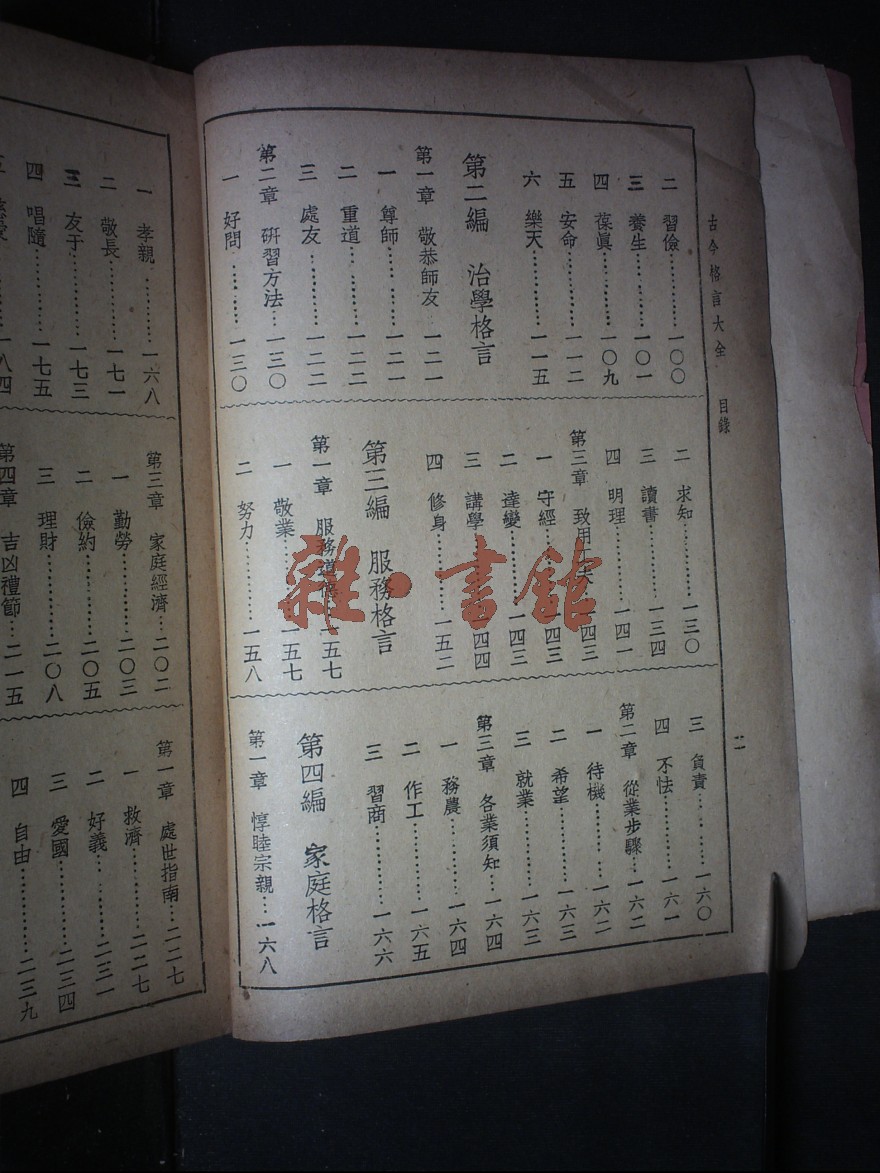 古今格言大全　目錄
二
二　習儉…………一〇〇
三　養生…………一〇一
四　葆眞…………一〇九
五　安命…………一一二
六　樂天…………一一五
第二編　治學格言
第一章　敬恭師友…一二一
一　尊師…………一二一
二　重道…………一二一
三　處友…………一二二
第二章　硏習方法…一三〇
一　好問…………一三〇
二　求知…………一三〇
三　讀書…………一三四
四　明理…………一四一
第三章　致用工夫…一四三
一　守經…………一四三
二　達變…………一四三
三　講學…………一四四
四　修身…………一五二
第三編　服務格言
第一章　服務道…一五七
一　敬業…………一五七
二　努力…………一五八
三　負責…………一六〇
四　不怯…………一六一
第二章　從業步驟…一六二
一　待機…………一六二
二　希望…………一六三
三　就業…………一六三
第三章　各業須知…一六四
一　務農…………一六四
二　作工…………一六五
三　習商…………一六六
第四編　家庭格言
第一章　惇睦宗親…一六八
一　孝親…………一六八
二　敬長…………一七一
三　友于…………一七三
四　唱隨…………一七五
一八四
第三章　家庭經濟…二〇二
一　勤勞…………二〇三
二　儉約…………二〇五
三　理財…………二〇八
第四章　吉凶禮節…二一五
第一章　處世指南…二二七
一　救濟…………二二七
二　好義…………二三一
三　愛國…………二三四
四　自由…………二三九
雜·書館